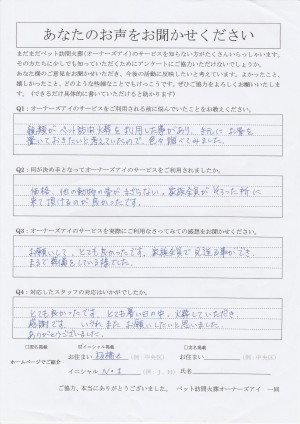 あなたのお声をお聞かせください
まだまだペット訪問火葬(オーナーズアイ)のサービスを知らない方がたくさんいらっしゃいます。
その方たちに少しでも知っていただくためにアンケートにご協力いただけないでしょうか。
あなた様のご意見をお聞かせいただき、今後の活動に反映したいと考えています。よかったこと、
嬉しかったこと、どのような些細なことでもけっこうです。ぜひ協力をよろしくお願いいたしま
す。(できるだけ具体的に書いていただけると助かります)
Q1:オーナーズアイのサービスをご利用される前に悩んでいたことをお教えください。
親類がペット訪問火葬を利用した事があり、手元にお骨を
置いておきたいと考えていたので、色々調べてみました。
Q2:何が決め手となってオーナーズアイのサービスをご利用されましたか。
価格、他の動物の骨がまざらない。家族全員がそろった所に
来て頂けるのが良かったです。
Q3:オーナーズアイのサービスを実際にご利用なさってみての感想をお聞かせください。
お願いして、とても良かったです。家族全員で見送る事ができ、
まるで葬儀をしている様でした。
Q4:対応したスタッフの対応はいかがでしたか。
とても良かったです。とても暑い日の中、火葬していただき、
感謝です。いずれまたお願いしたいと思いました。
ありがとうございました。
□実名掲載 イニシャル掲載 □実名掲載
ホームページでご紹介 お住まい 板橋区 (例:中央区) お住まい (例:中央区)
イニシャル (例:I.H) 氏名
ご協力、本当にありがとうございました。 ペット訪問火葬オーナーズアイ 一同